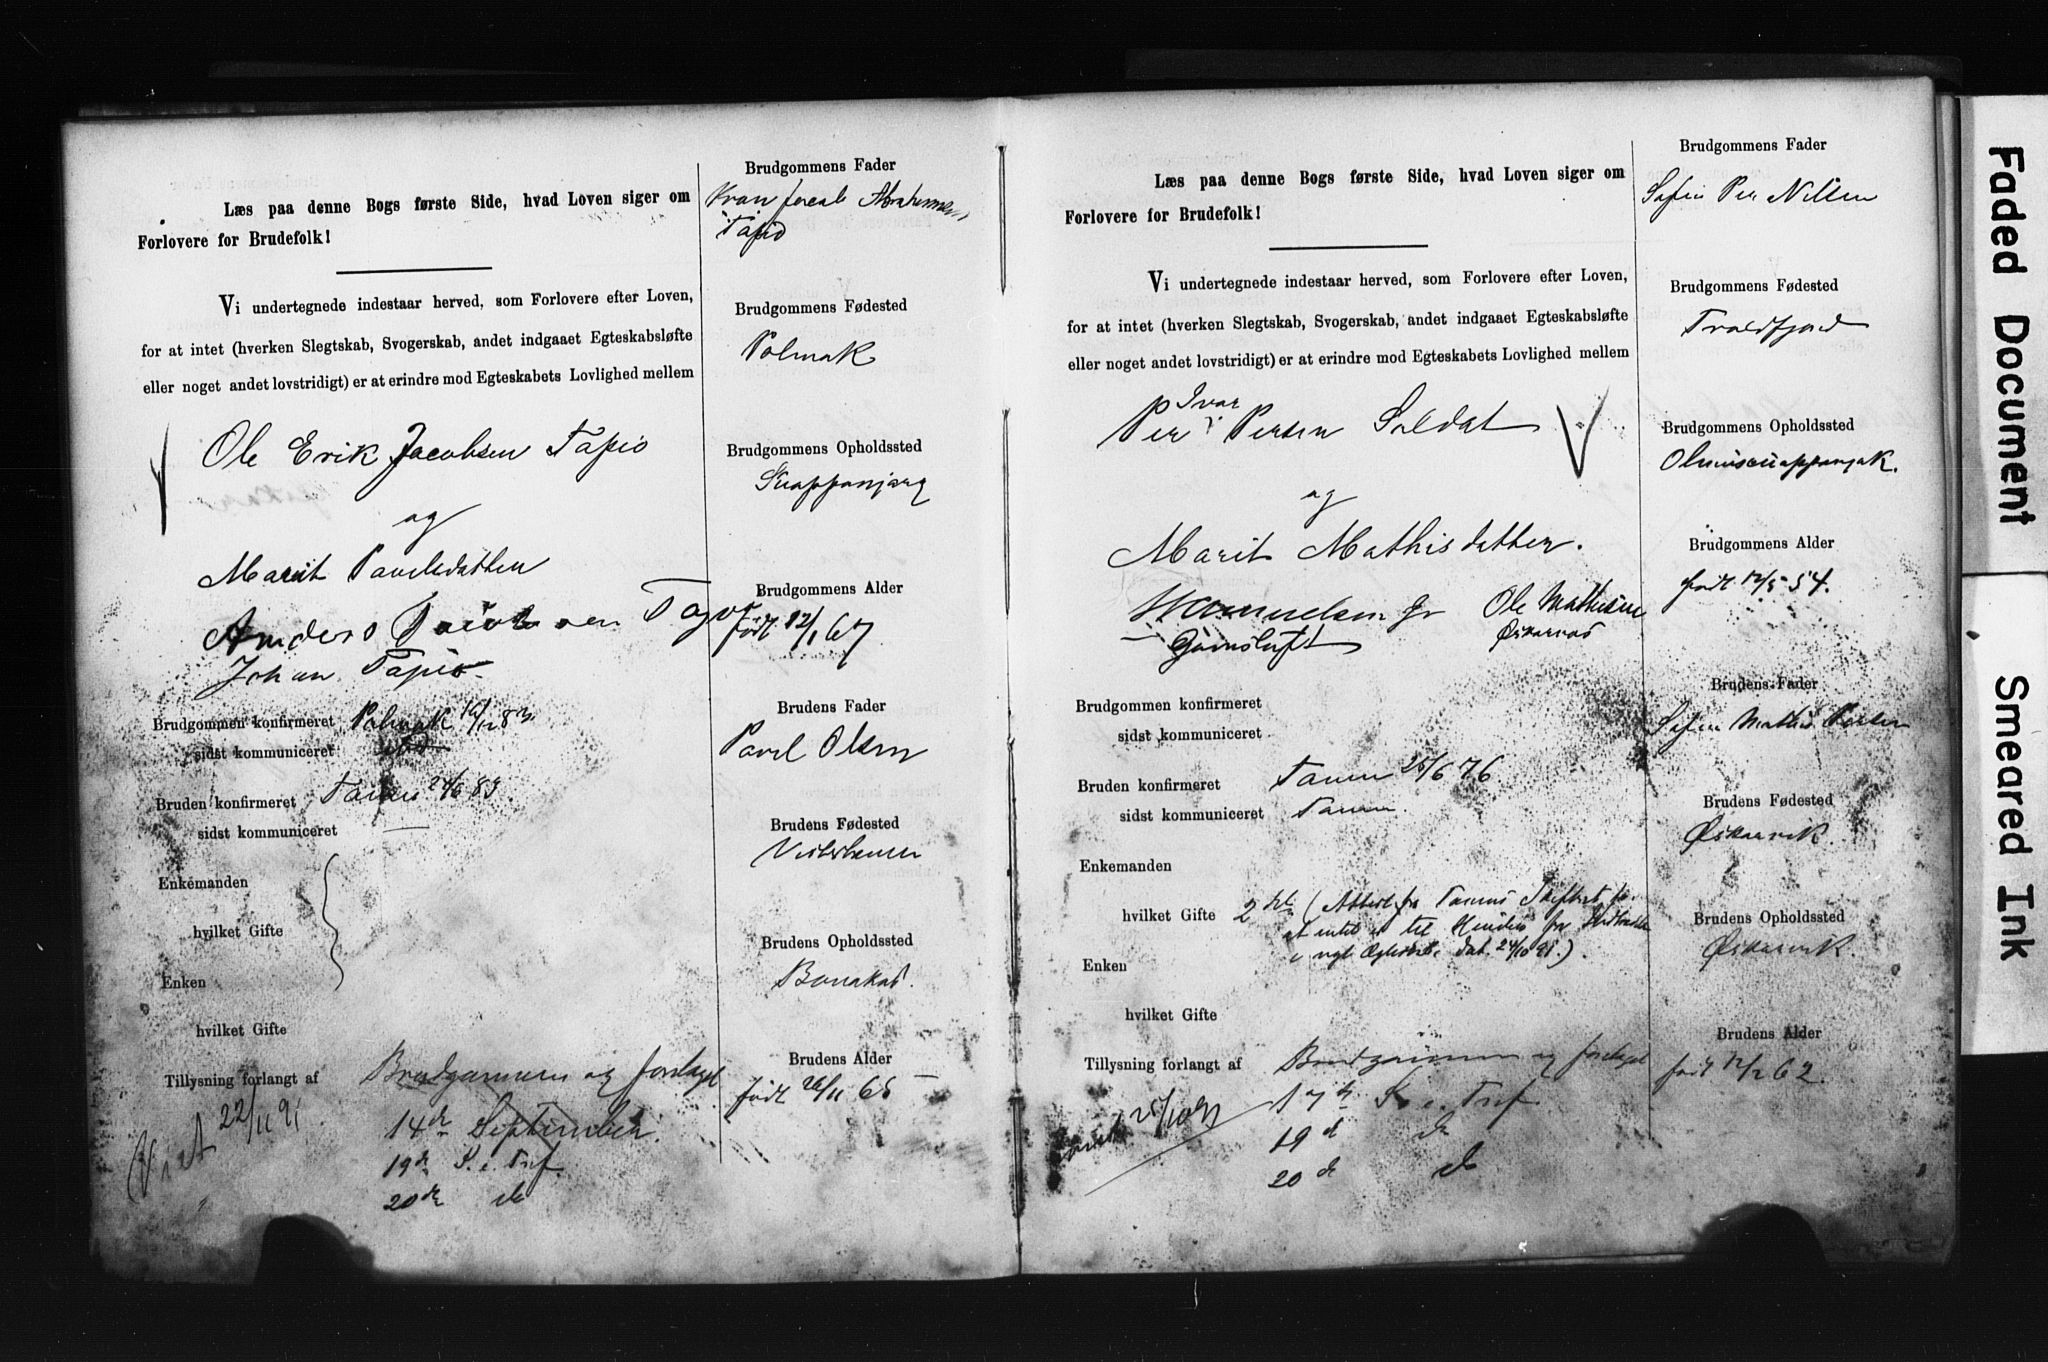 Læs paa denne Bogs første Side, hvad Loven siger om
Forlovere for Brudefolk!
Vi undertegnede indestaar herved, som Forlovere efter Loven,
for at intet (hverken Slegtskab, Svogerskab, andet indgaaet Egteskabsløfte
eller noget andet lovstridigt) er at erindre mod Egteskabets Lovlighed mellem
Ole Erik Jacobsen Tapio
og
Marit Pavelsdatter
Anders
Johan Tapio
Brudgommen konfirmeret Polmak
sidst kommuniceret
Bruden konfirmeret Tanen 24/6 83
sidst kommuniceret —
Enkemanden
hvilket Gifte
Enken
hvilket Gifte
Tillysning forlangt af Brudgommen og forelaget
14de September.
19de S. e. Tref.
20de do
Viet 22/11 91
Brudgommens Fader
Abrahamsen
Tapio
Brudgommens Fødested
Polmak
Brudgommens Opholdssted
Brudgommens Alder
født 12/1 67
Brudens Fader
Pavel Olsen
Brudens Fødested
Brudens Opholdssted
Bonakas.
Brudens Alder
født 26/11 65
Læs paa denne Bogs første Side, hvad Loven siger om
Forlovere for Brudefolk!
Vi undertegnede indestaar herved, som Forlovere efter Loven,
for at intet (hverken Slegtskab, Svogerskab, andet indgaaet Egteskabsløfte
eller noget andet lovstridigt) er at erindre mod Egteskabets Lovlighed mellem
Per Ivar Persen Soldat
og
Marit Mathisdatter.
Ole Mathisen
Brudgommen konfirmeret
sidst kommuniceret
Bruden konfirmeret Tanen 25/6 76
sidst kommuniceret Tanen.
Enkemanden
hvilket Gifte 2det (Attest fra Tanens Skifteret for
at intet er til Hinder for
dat. 24/10 91.)
Enken
hvilket Gifte
Tillysning forlangt af Brudgommen og forelaget
17de S. e. Tref.
19de do
20de do
25/10 91
Brudgommens Fader
Per Nilsen
Brudgommens Fødested
Troldfjord
Brudgommens Opholdssted
Brudgommens Alder
født 12/5 54.
Brudens Fader
Mathis Persen
Brudens Fødested
Øskarvik.
Brudens Opholdssted
Øskarvik.
Brudens Alder
født 12/2 62.
Faded Document
Smeared Ink